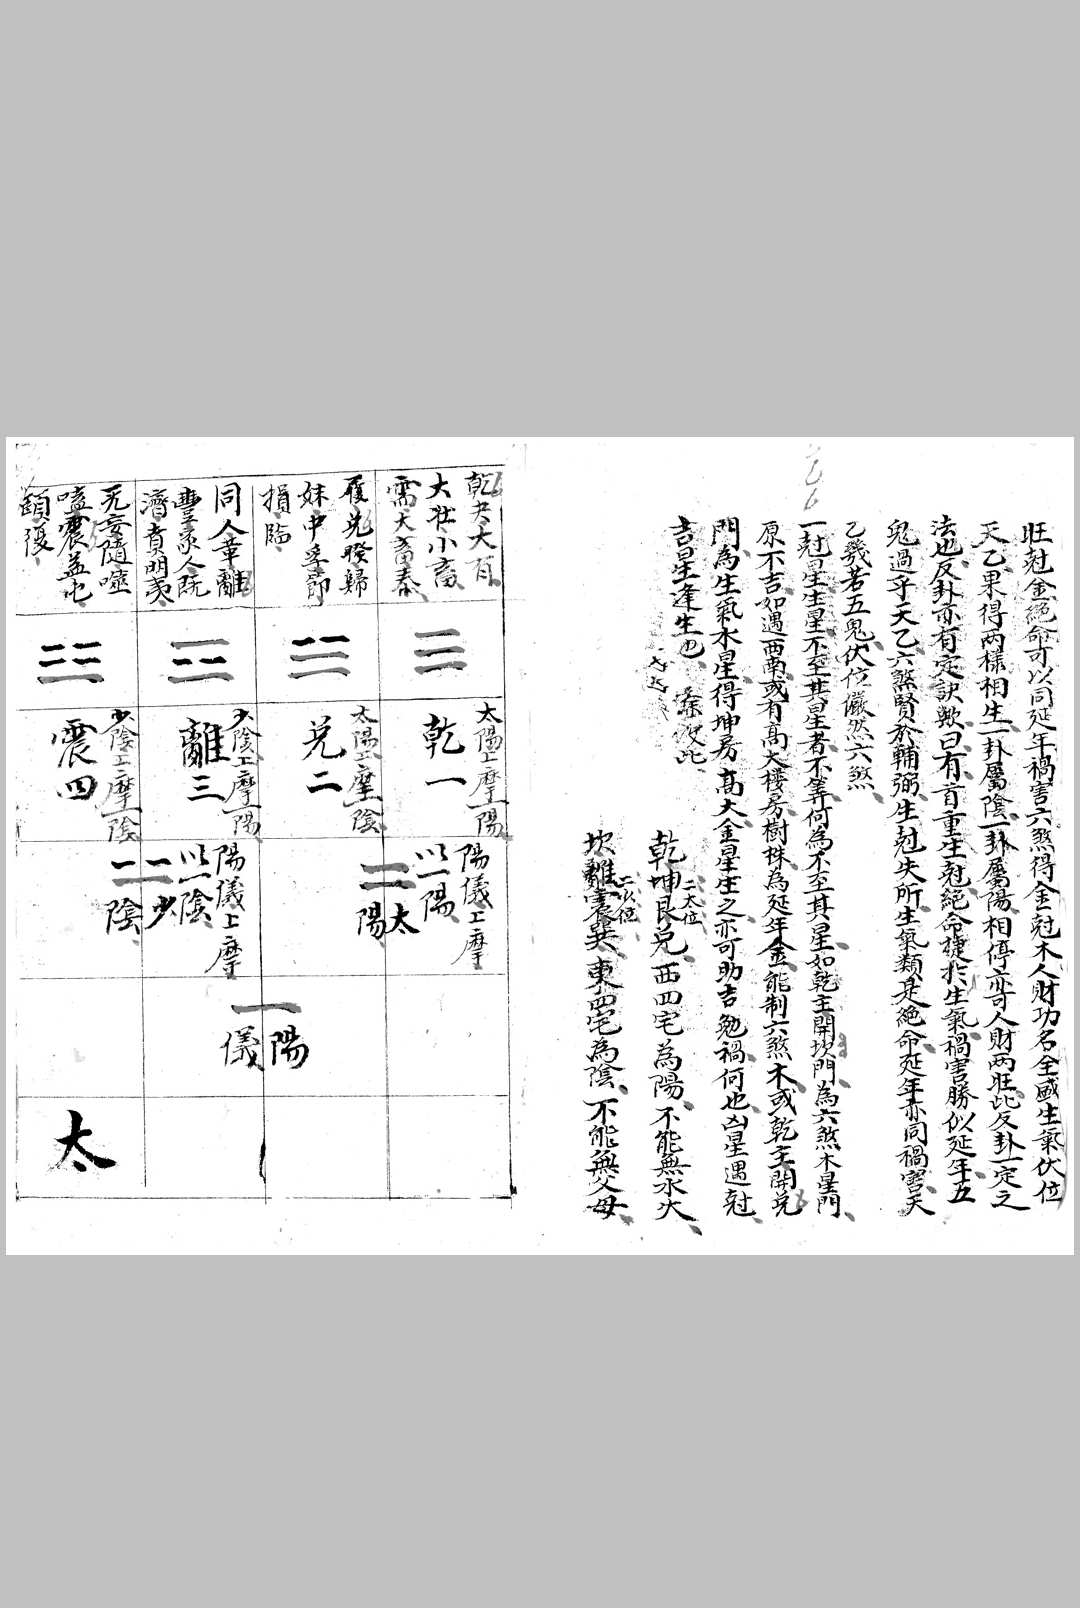 旺尅金絕命可以同延年禍害六煞得金尅木人財功名全盛生氣伏位
天乙果得两樣相生一卦屬陰一卦屬陽相停亦可人財两旺此反卦一定之
法也反卦亦有定訣歌曰有首重生尅絕命捷於生氣禍害勝似延年五
鬼過乎天乙六煞賢於輔弼生尅失所生氣類是絕命延年亦同禍害天
乙幾若五鬼伏位儼然六煞
一尅星生星不至其星者不筭何為不至其星如乾主開坎門為六煞木星門
原不吉如遇西南或有高大樓房樹株為延年金能制六煞木或乾主開兌
門為生氣木星得坤房高大金星生之亦可助吉勉禍何也凶星遇尅
吉星逢生也
乾坤艮兌西四宅為陽不能無水火
二太位
坎離震巽東四宅為陰不能無父母
二少位
乾夬大有
大壯小畜
需大畜泰
履兌睽歸
妹中孚節
損臨
同人革離
豐家人既
濟賁明夷
无妄隨噬
嗑震益屯
頤復
太陽上摩一陽
乾一
太陽上摩一陰
兌二
少陰上摩一陽
離三
少陰上摩一陰
震四
陽儀上摩
以一陽
太
陽
陽儀上摩
以一陰
少
陰
陽
儀
太